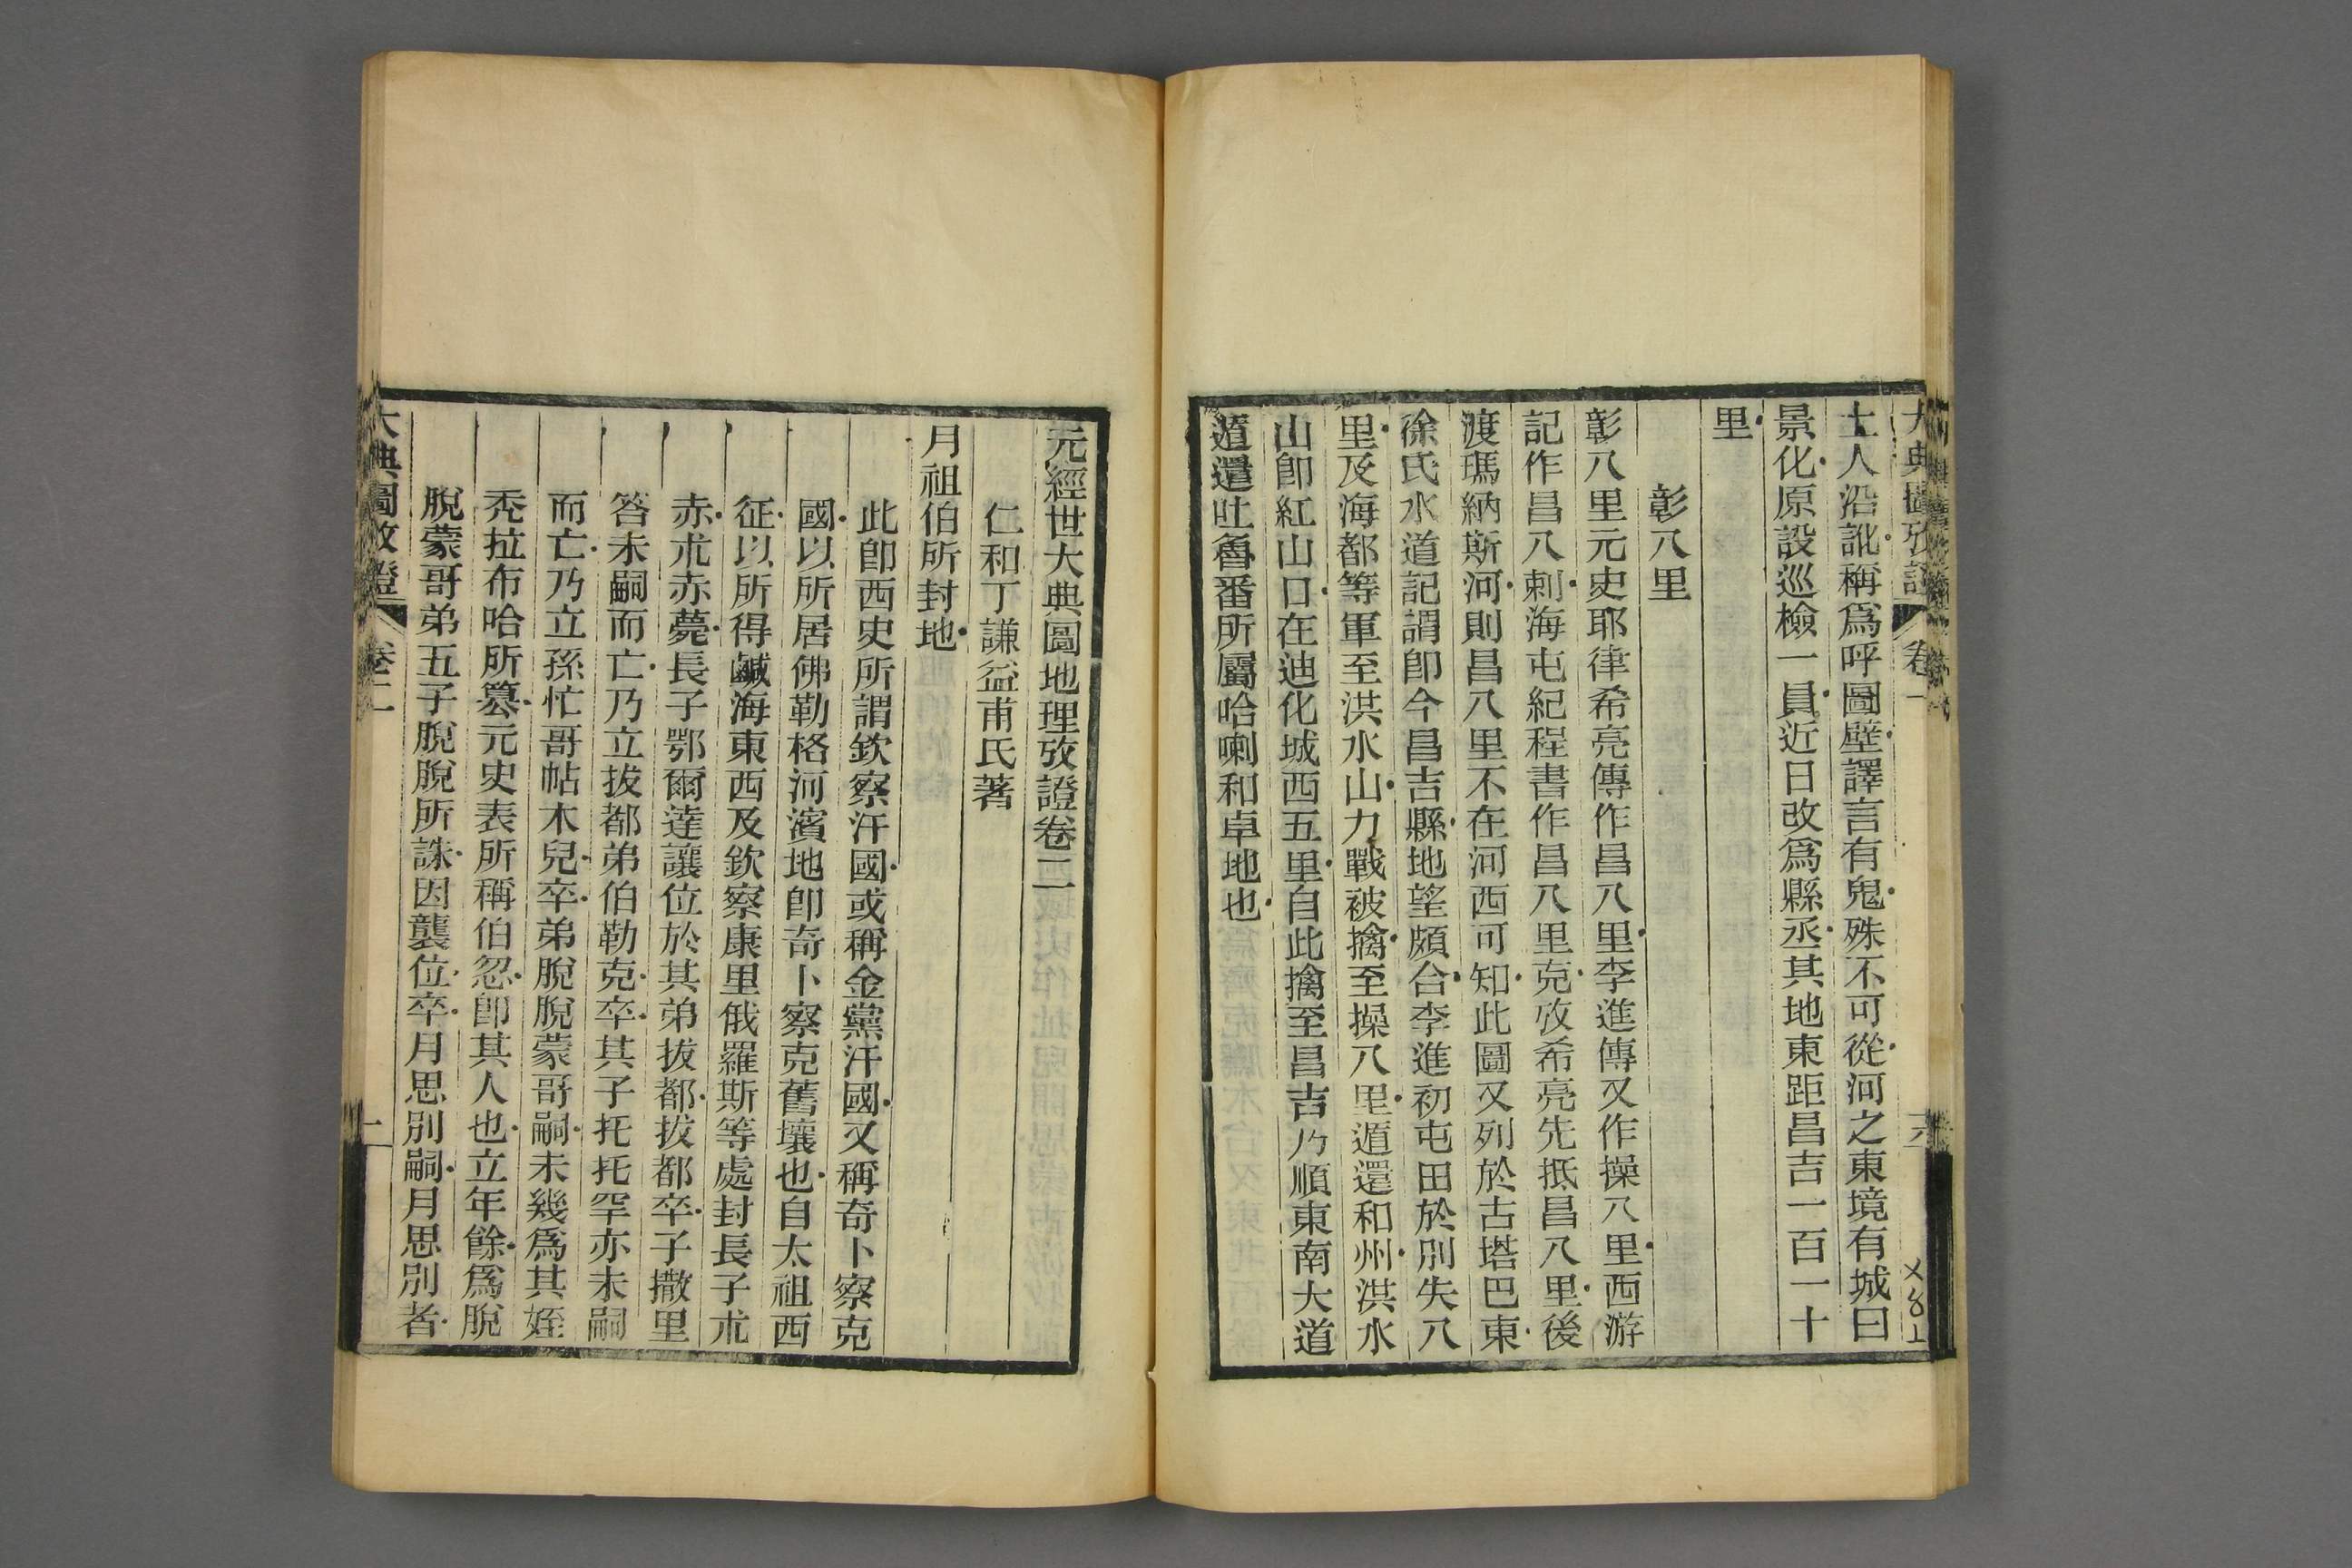 大典圖攷證 卷一 六
土人沿訛稱爲呼圖壁譯言有鬼殊不可從河之東境有城曰
景化原設巡檢一員近日改爲縣丞其地東距昌吉一百一十
里
彰八里
彰八里元史耶律希亮傳作昌八里李進傳又作操八里西游
記作昌八剌海屯紀程書作昌八里克攷希亮先抵昌八里後
渡瑪納斯河則昌八里不在河西可知此圖又列於古塔巴東
徐氏水道記謂卽今昌吉縣地望頗合李進初屯田於別失八
里及海都等軍至洪水山力戰被擒至操八里遁還和州洪水
山卽紅山口在迪化城西五里自此擒至昌吉乃順東南大道
遁還吐魯番所屬哈喇和卓地也
元經世大典圖地理攷證卷二
仁和丁謙益甫氏著
月祖伯所封地
此卽西史所謂欽察汗國或稱金黨汗國又稱奇卜察克
國以所居佛勒格河濱地卽奇卜察克舊壤也自太祖西
征以所得鹹海東西及欽察康里俄羅斯等處封長子朮
赤朮赤薨長子鄂爾達讓位於其弟拔都拔都卒子撒里
答未嗣而亡乃立拔都弟伯勒克卒其子托托罕亦未嗣
而亡乃立孫忙哥帖木兒卒弟脫脫蒙哥嗣未幾爲其姪
禿拉布哈所簒元史表所稱伯忽卽其人也立年餘爲脫
脫蒙哥弟五子脫脫所誅因襲位卒月思別嗣月思別者
大典圖攷證 卷二 一